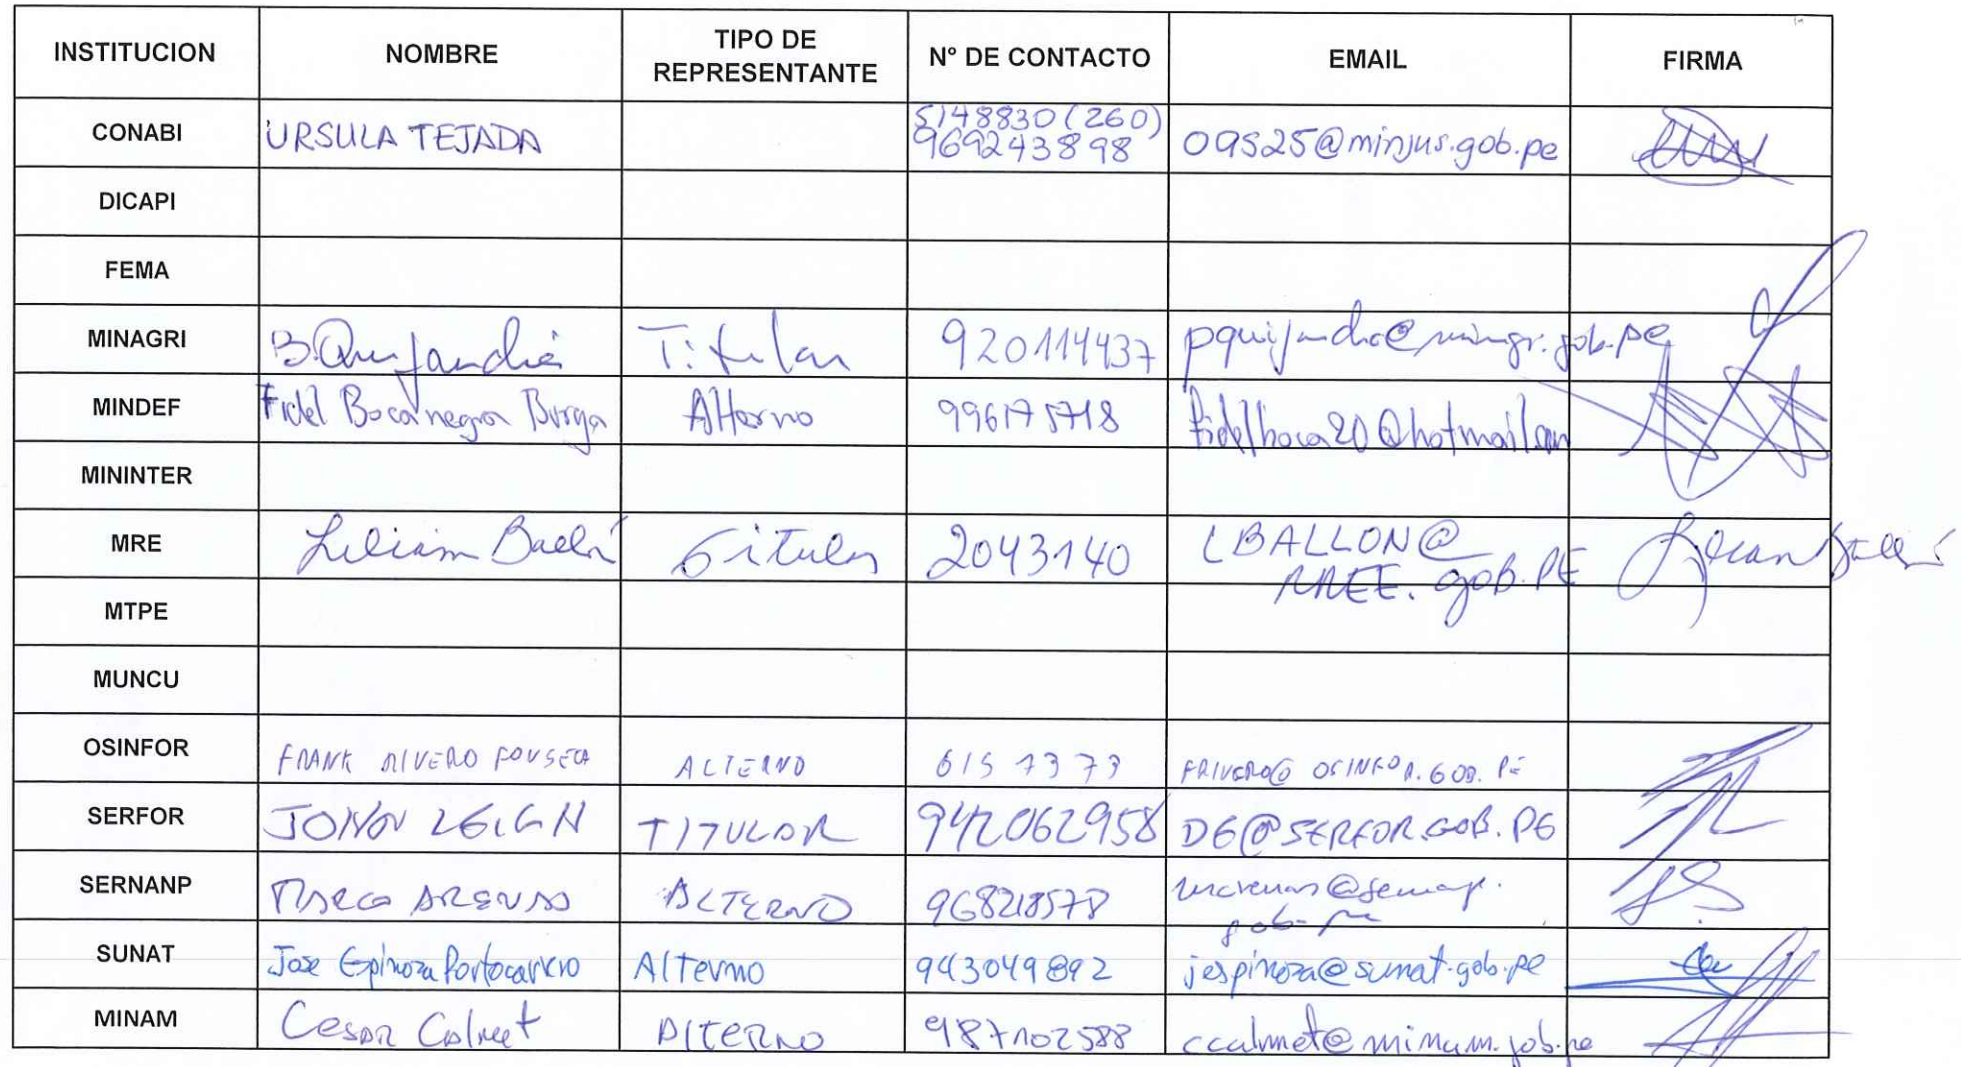 INSTITUCION NOMBRE TIPO DE REPRESENTANTE N° DE CONTACTO EMAIL FIRMA
CONABI URSULA TEJADA 5148830 (260) 969243898 09525@minjus.gob.pe
DICAPI
FEMA
MINAGRI B. Quijandría Titular 920114437
MINDEF Fidel Bocanegra Burga Alterno 996175718 fidelboca20@hotmail.com
MININTER
MRE Liliam Ballón Titular 2043140 LBALLON@ RREE.gob.PE
MTPE
MUNCU
OSINFOR FRANK RIVERO FONSECA ALTERNO 615 7373 FRIVERO@OSINFOR.GOB.PE
SERFOR JOHN LEIGH TITULAR 942062958 DE@SERFOR.GOB.PE
SERNANP MARCO ARENAS ALTERNO 968218578 gob.pe
SUNAT Jose Espinoza Portocarrero Alterno 943049892 jespinoza@sunat.gob.pe
MINAM Cesar Calmet ALTERNO 987102588 ccalmet@minam.gob.pe